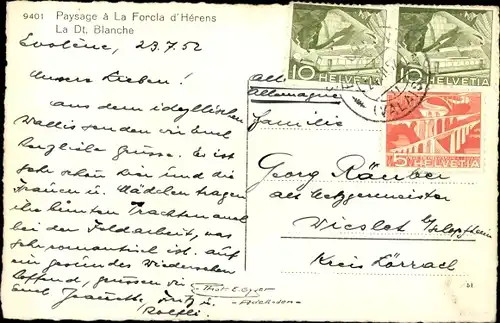 9401 Paysage à La Forcla d'Hérens
La Dt. Blanche
Evolène, 23.7.52
Unsere Lieben!
aus dem idyllischen
Wallis senden wir Euch
herzliche Grüsse. Es ist
sehr schön hier und die
Frauen u. Mädchen tragen
ihre bunten Trachten auch
bei der Feldarbeit, was
sehr romantisch ist. auf
ein gesundes Wiedersehen
hoffend, grüssen
Euch Jeanette, Fritz u.
Rolfli.
Allemagne
Familie
Georg Räuber
alt Metzgermeister
Wieslet
Kreis Lörrach
10 HELVETIA
10 HELVETIA
5 HELVETIA
(VALAIS)
51